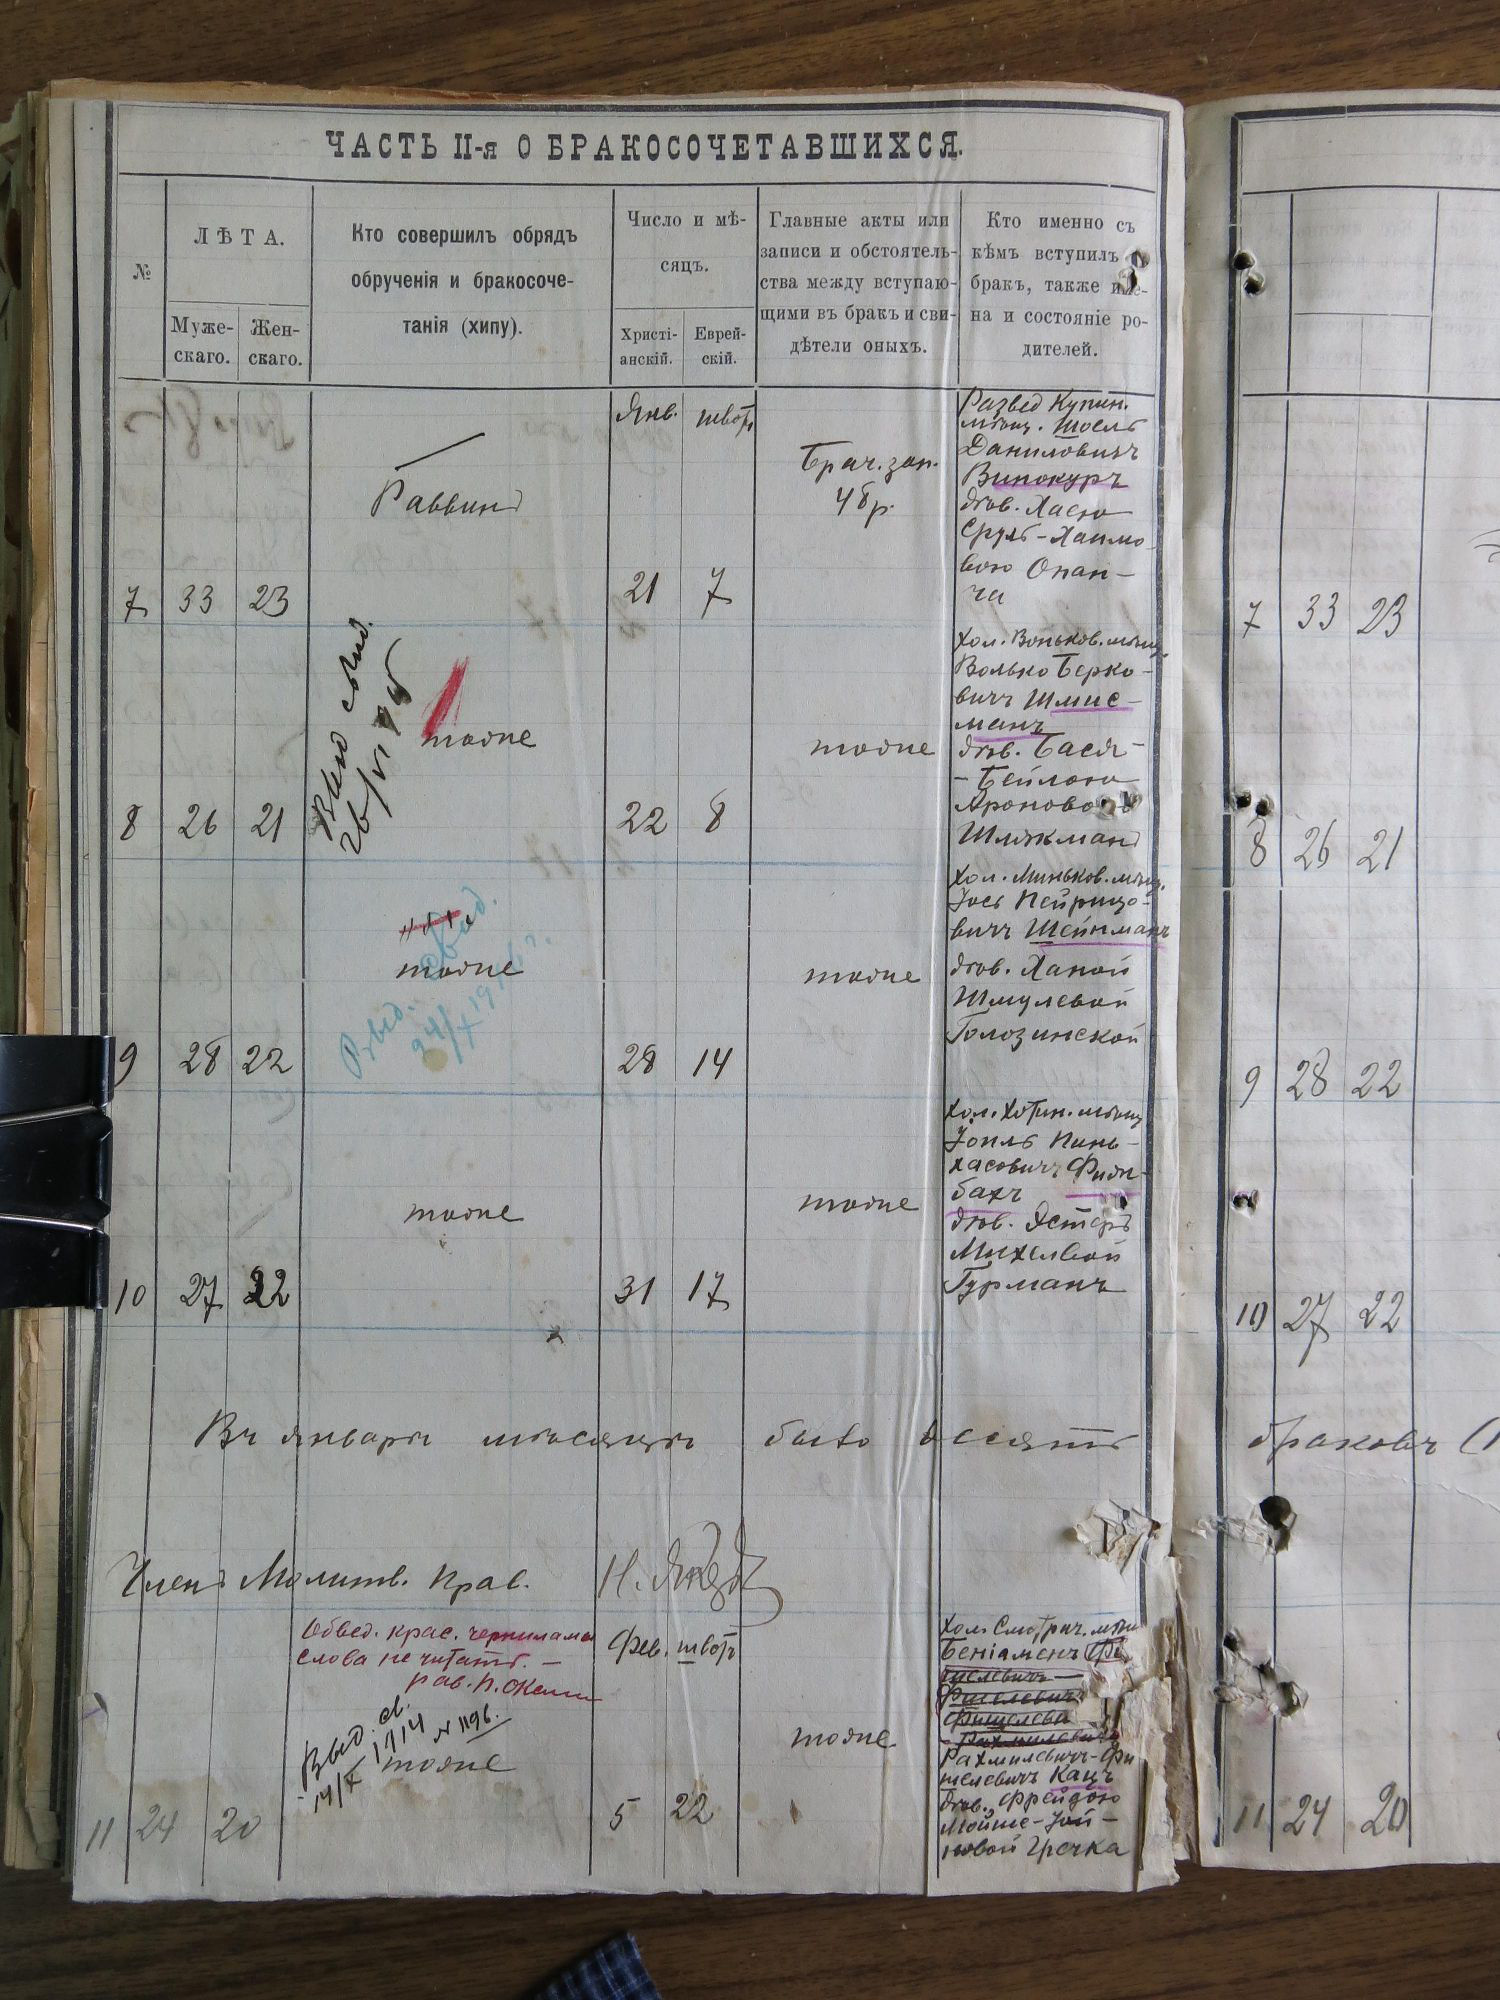 ЧАСТЬ II-я О БРАКОСОЧЕТАВШИХСЯ.
№
ЛѢТА.
Муже-
скаго.
Жен-
скаго.
Кто совершилъ обрядъ
обрученія и бракосоче-
танія (хипу).
Число и мѣ-
сяцъ.
Христі-
анскій.
Еврей-
скій.
Главные акты или
записи и обстоятель-
ства между вступаю-
щими въ бракъ и сви-
дѣтели оныхъ.
Кто именно съ
кѣмъ вступилъ
бракъ, также име-
на и состояніе ро-
дителей.
Янв. шват
7 33 23
Раввинъ
21 7
Брач. зап.
4 бр.
Развед Купин.
мѣщ. Шоель
Даниловичъ
Винокуръ
дѣв. Хасею
Сруль-Хаимо
вою Опан-
ча
8 26 21
тоже
22 8
тоже
Хол. Воньков. мѣщ.
Волько Берко-
вичъ Шмис-
манъ
дѣв. Бася-
-Бейлою
Ароново
Шлякманъ
Выд. свид.
9 28 22
тоже
28 14
тоже
Хол. Миньков. мѣщ.
Іось Пейрицо-
вичъ Шейнманъ
дѣв. Ханой
Шмулевой
Голозинской
10 27 22
тоже
31 17
тоже
Хол. Хотин. мѣщ
Іоиль Пинь-
хасовичъ Фиш-
бахъ
дѣв. Эстеръ
Михелевой
Гурманъ
Въ январѣ мѣсяцѣ было десять
браковъ
Членъ Молитв. Прав.
Обвед. крас. чернилами
слова не читать. -
рав.
Фев. шватъ
Выд. св.
14/X 1914 № 1196.
11 24 20
тоже
5 22
тоже
Хол. Смотрич. мѣщ
Беніаменъ
Фишелевичъ
Рахмилевичъ-Фи
шелевичъ Кацъ
дѣв. Фрейдою
Мойше-Іой-
новой Гречка
7 33 23
8 26 21
9 28 22
10 27 22
11 24 20